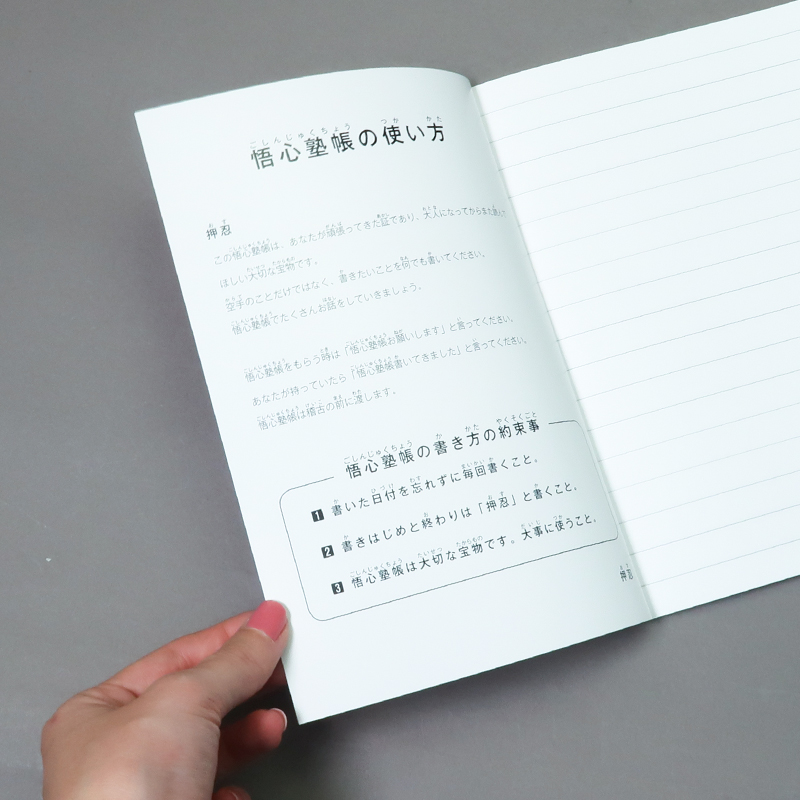 悟心塾帳の使い方
押忍
この悟心塾帳は、あなたが頑張ってきた証であり、大人になってからまた読んで
ほしい大切な宝物です。
空手のことだけではなく、書きたいことを何でも書いてください。
悟心塾帳でたくさんお話をしていきましょう。
悟心塾帳をもらう時は「悟心塾帳お願いします」と言ってください。
あなたが持っていたら「悟心塾帳書いてきました」と言ってください。
悟心塾帳は稽古の前に渡します。
悟心塾帳の書き方の約束事
1 書いた日付を忘れずに毎回書くこと。
2 書きはじめと終わりは「押忍」と書くこと。
3 悟心塾帳は大切な宝物です。大事に使うこと。
押忍